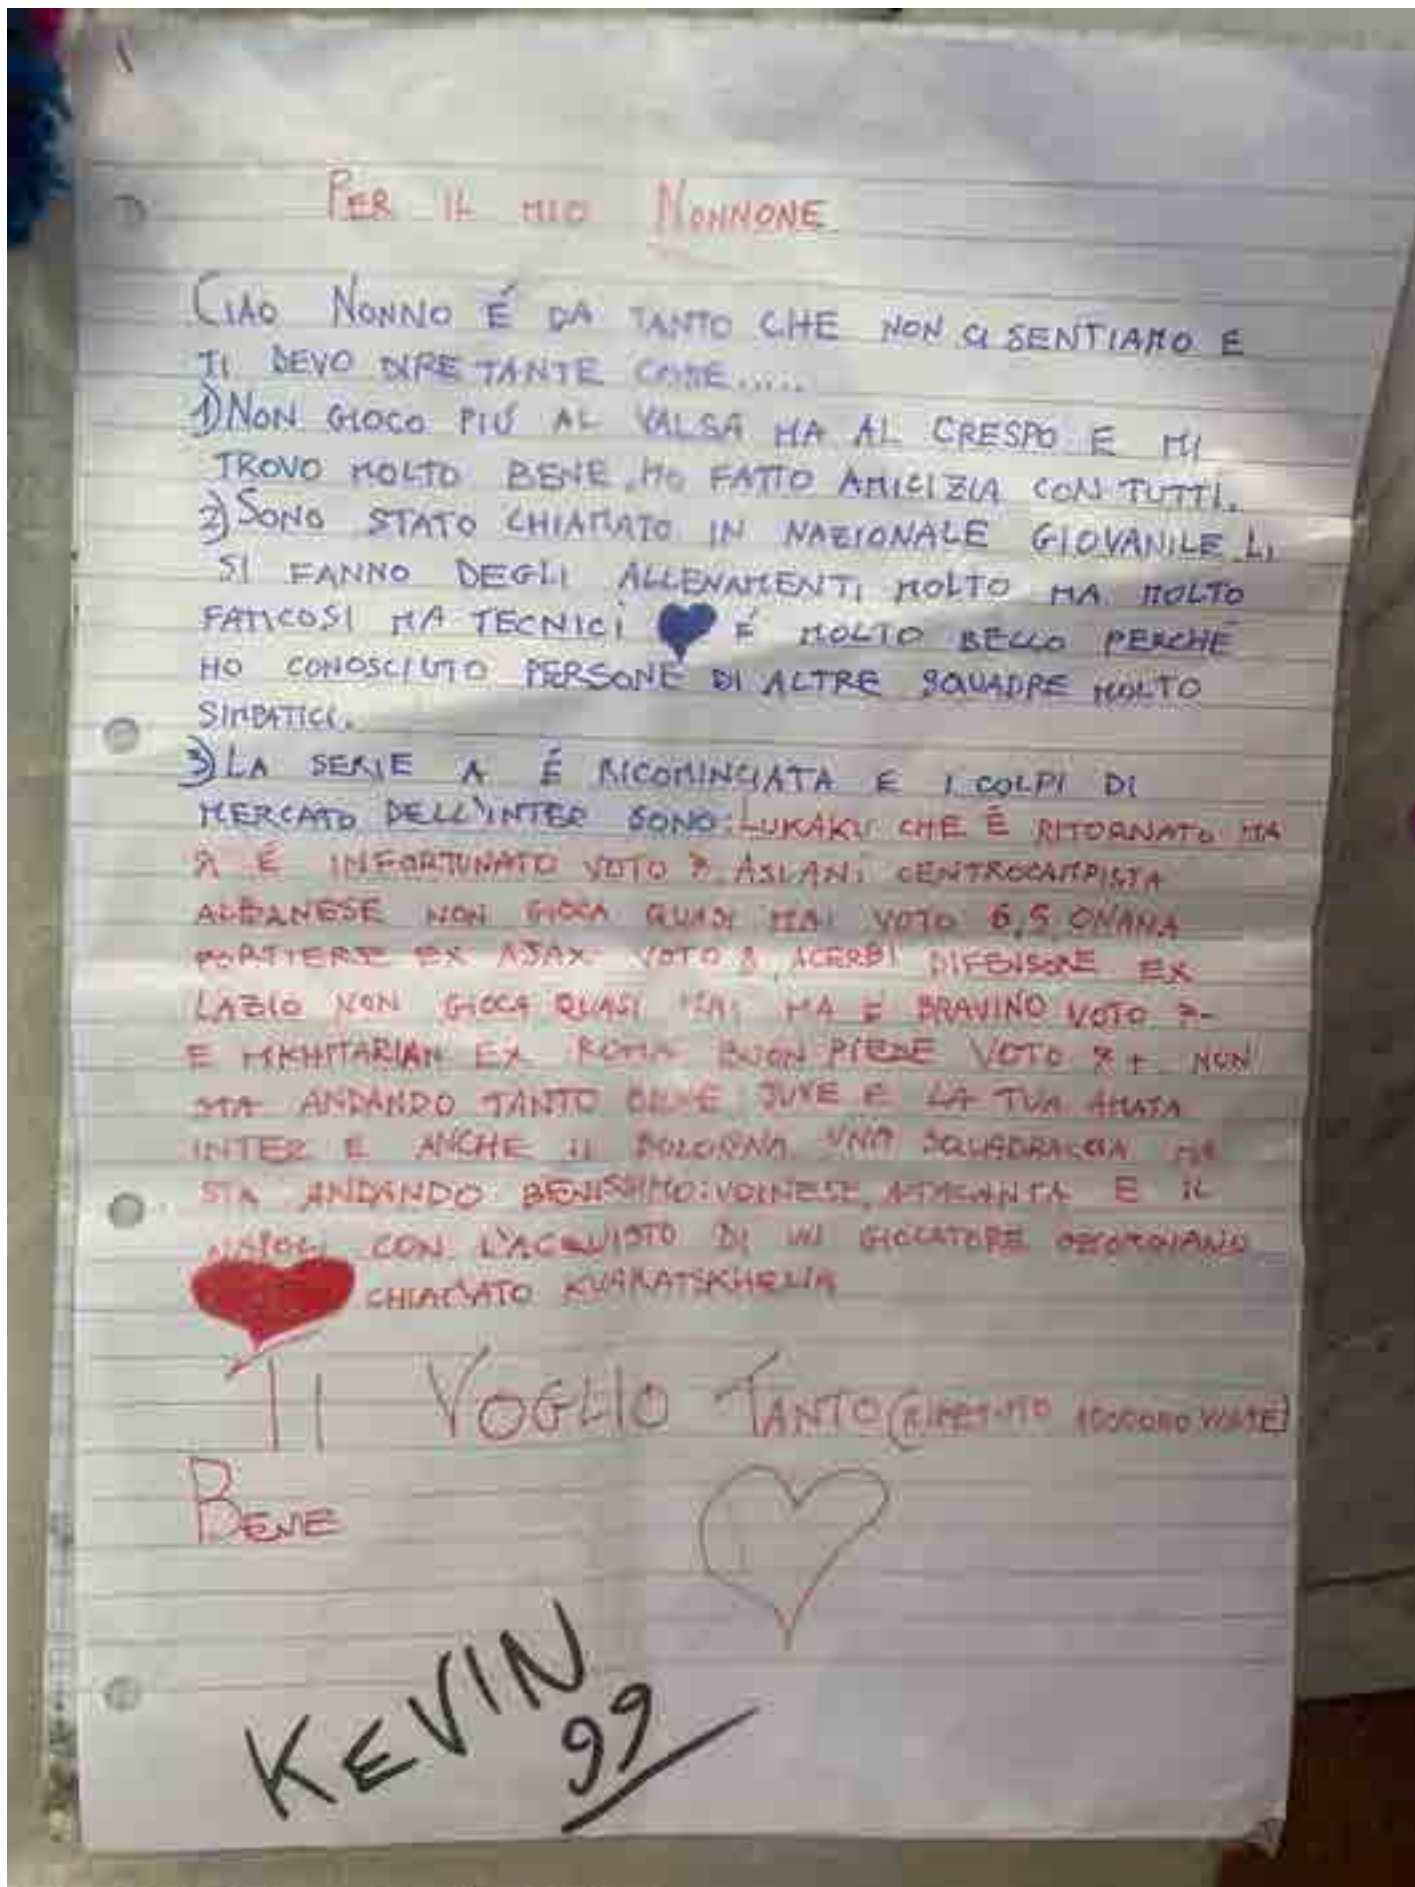 PER IL MIO NONNONE
CIAO NONNO É DA TANTO CHE NON CI SENTIAMO E
TI DEVO DIRE TANTE COSE.....
1) NON GIOCO PIÚ AL VALSA MA AL CRESPO E MI
TROVO MOLTO BENE, HO FATTO AMICIZIA CON TUTTI.
2) SONO STATO CHIAMATO IN NAZIONALE GIOVANILE LI
SI FANNO DEGLI ALLENAMENTI MOLTO MA MOLTO
FATICOSI MA TECNICI É MOLTO BELLO PERCHÉ
HO CONOSCIUTO PERSONE DI ALTRE SQUADRE MOLTO
SIMPATICI.
3) LA SERIE A É RICOMINCIATA E I COLPI DI
MERCATO DELL'INTER SONO: LUKAKU CHE É RITORNATO MA
É INFORTUNATO VOTO ASLANI CENTROCAMPISTA
ALBANESE NON GIOCA QUASI MAI VOTO 6,5 ONANA
PORTIERE EX AJAX VOTO 8, ACERBI DIFENSORE EX
LAZIO NON GIOCA QUASI MAI MA É BRAVINO VOTO
E MKHITARIAN EX ROMA BUON PIEDE VOTO NON
STA ANDANDO TANTO BENE JUVE E LA TUA AMATA
INTER E ANCHE IL BOLOGNA UNA SQUADRACCIA MA
STA ANDANDO BENISSIMO: UDINESE, ATALANTA E IL
NAPOLI CON L'ACQUISTO DI UN GIOCATORE
CHIAMATO KVARATSKHELIA
TI VOGLIO TANTO (RIPETUTO VOLTE)
BENE
KEVIN
99